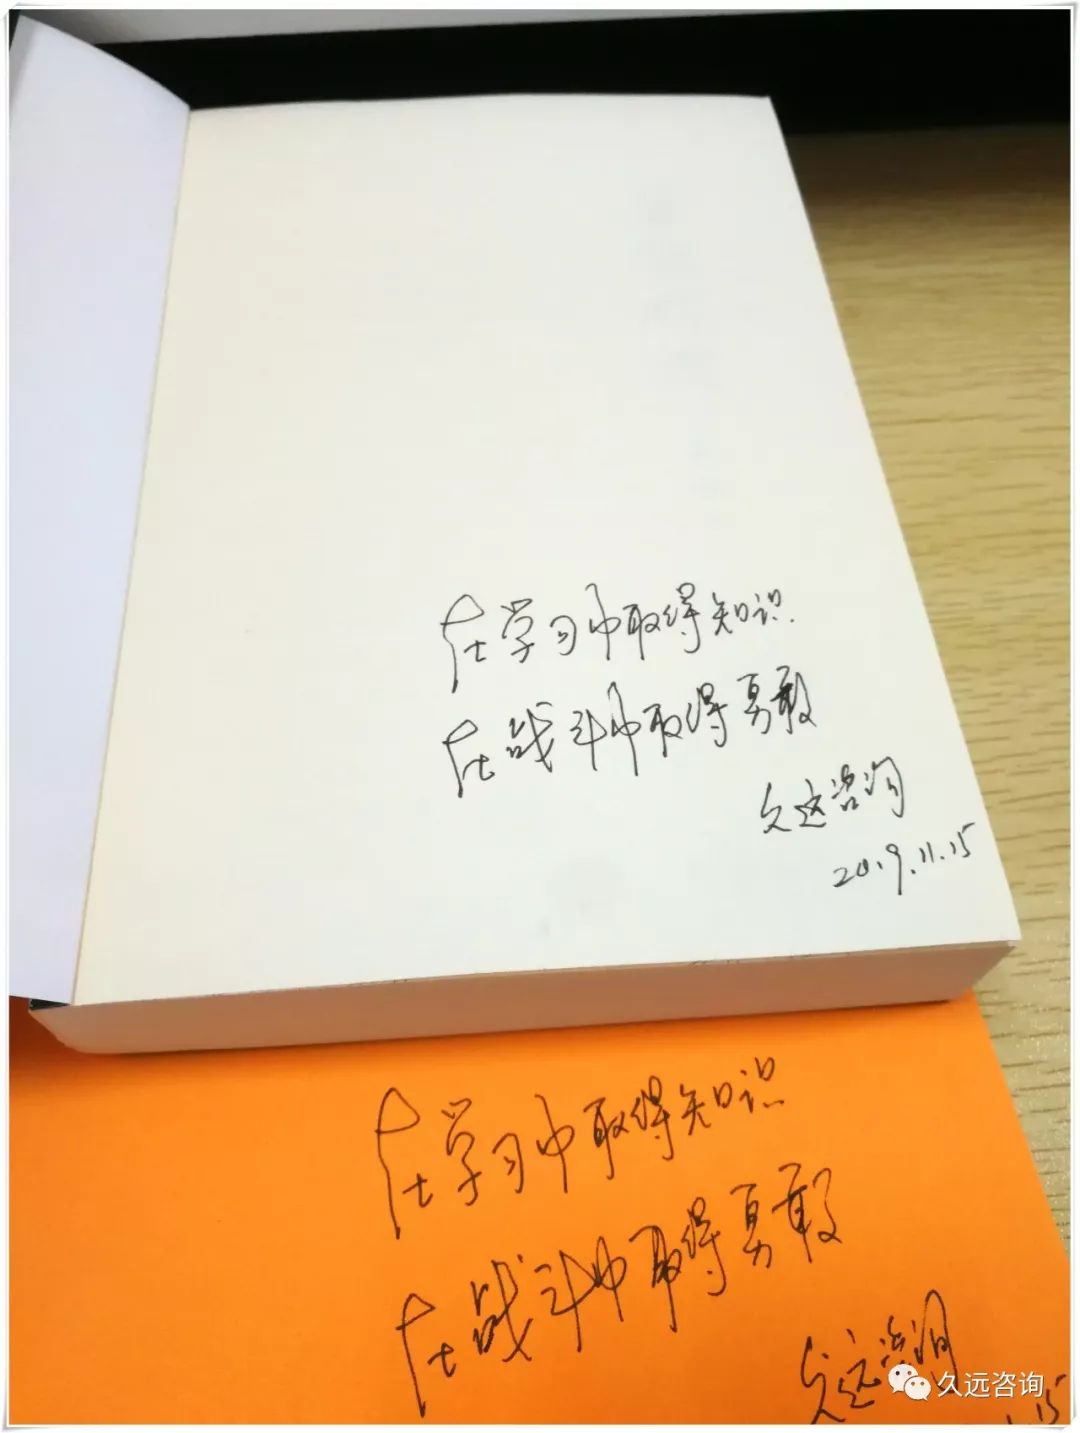 在学习中取得知识.
在战斗中取得勇敢
久远咨询
2019.11.15
在学习中取得知识
在战斗中取得勇敢
久远咨询
.15
久远咨询